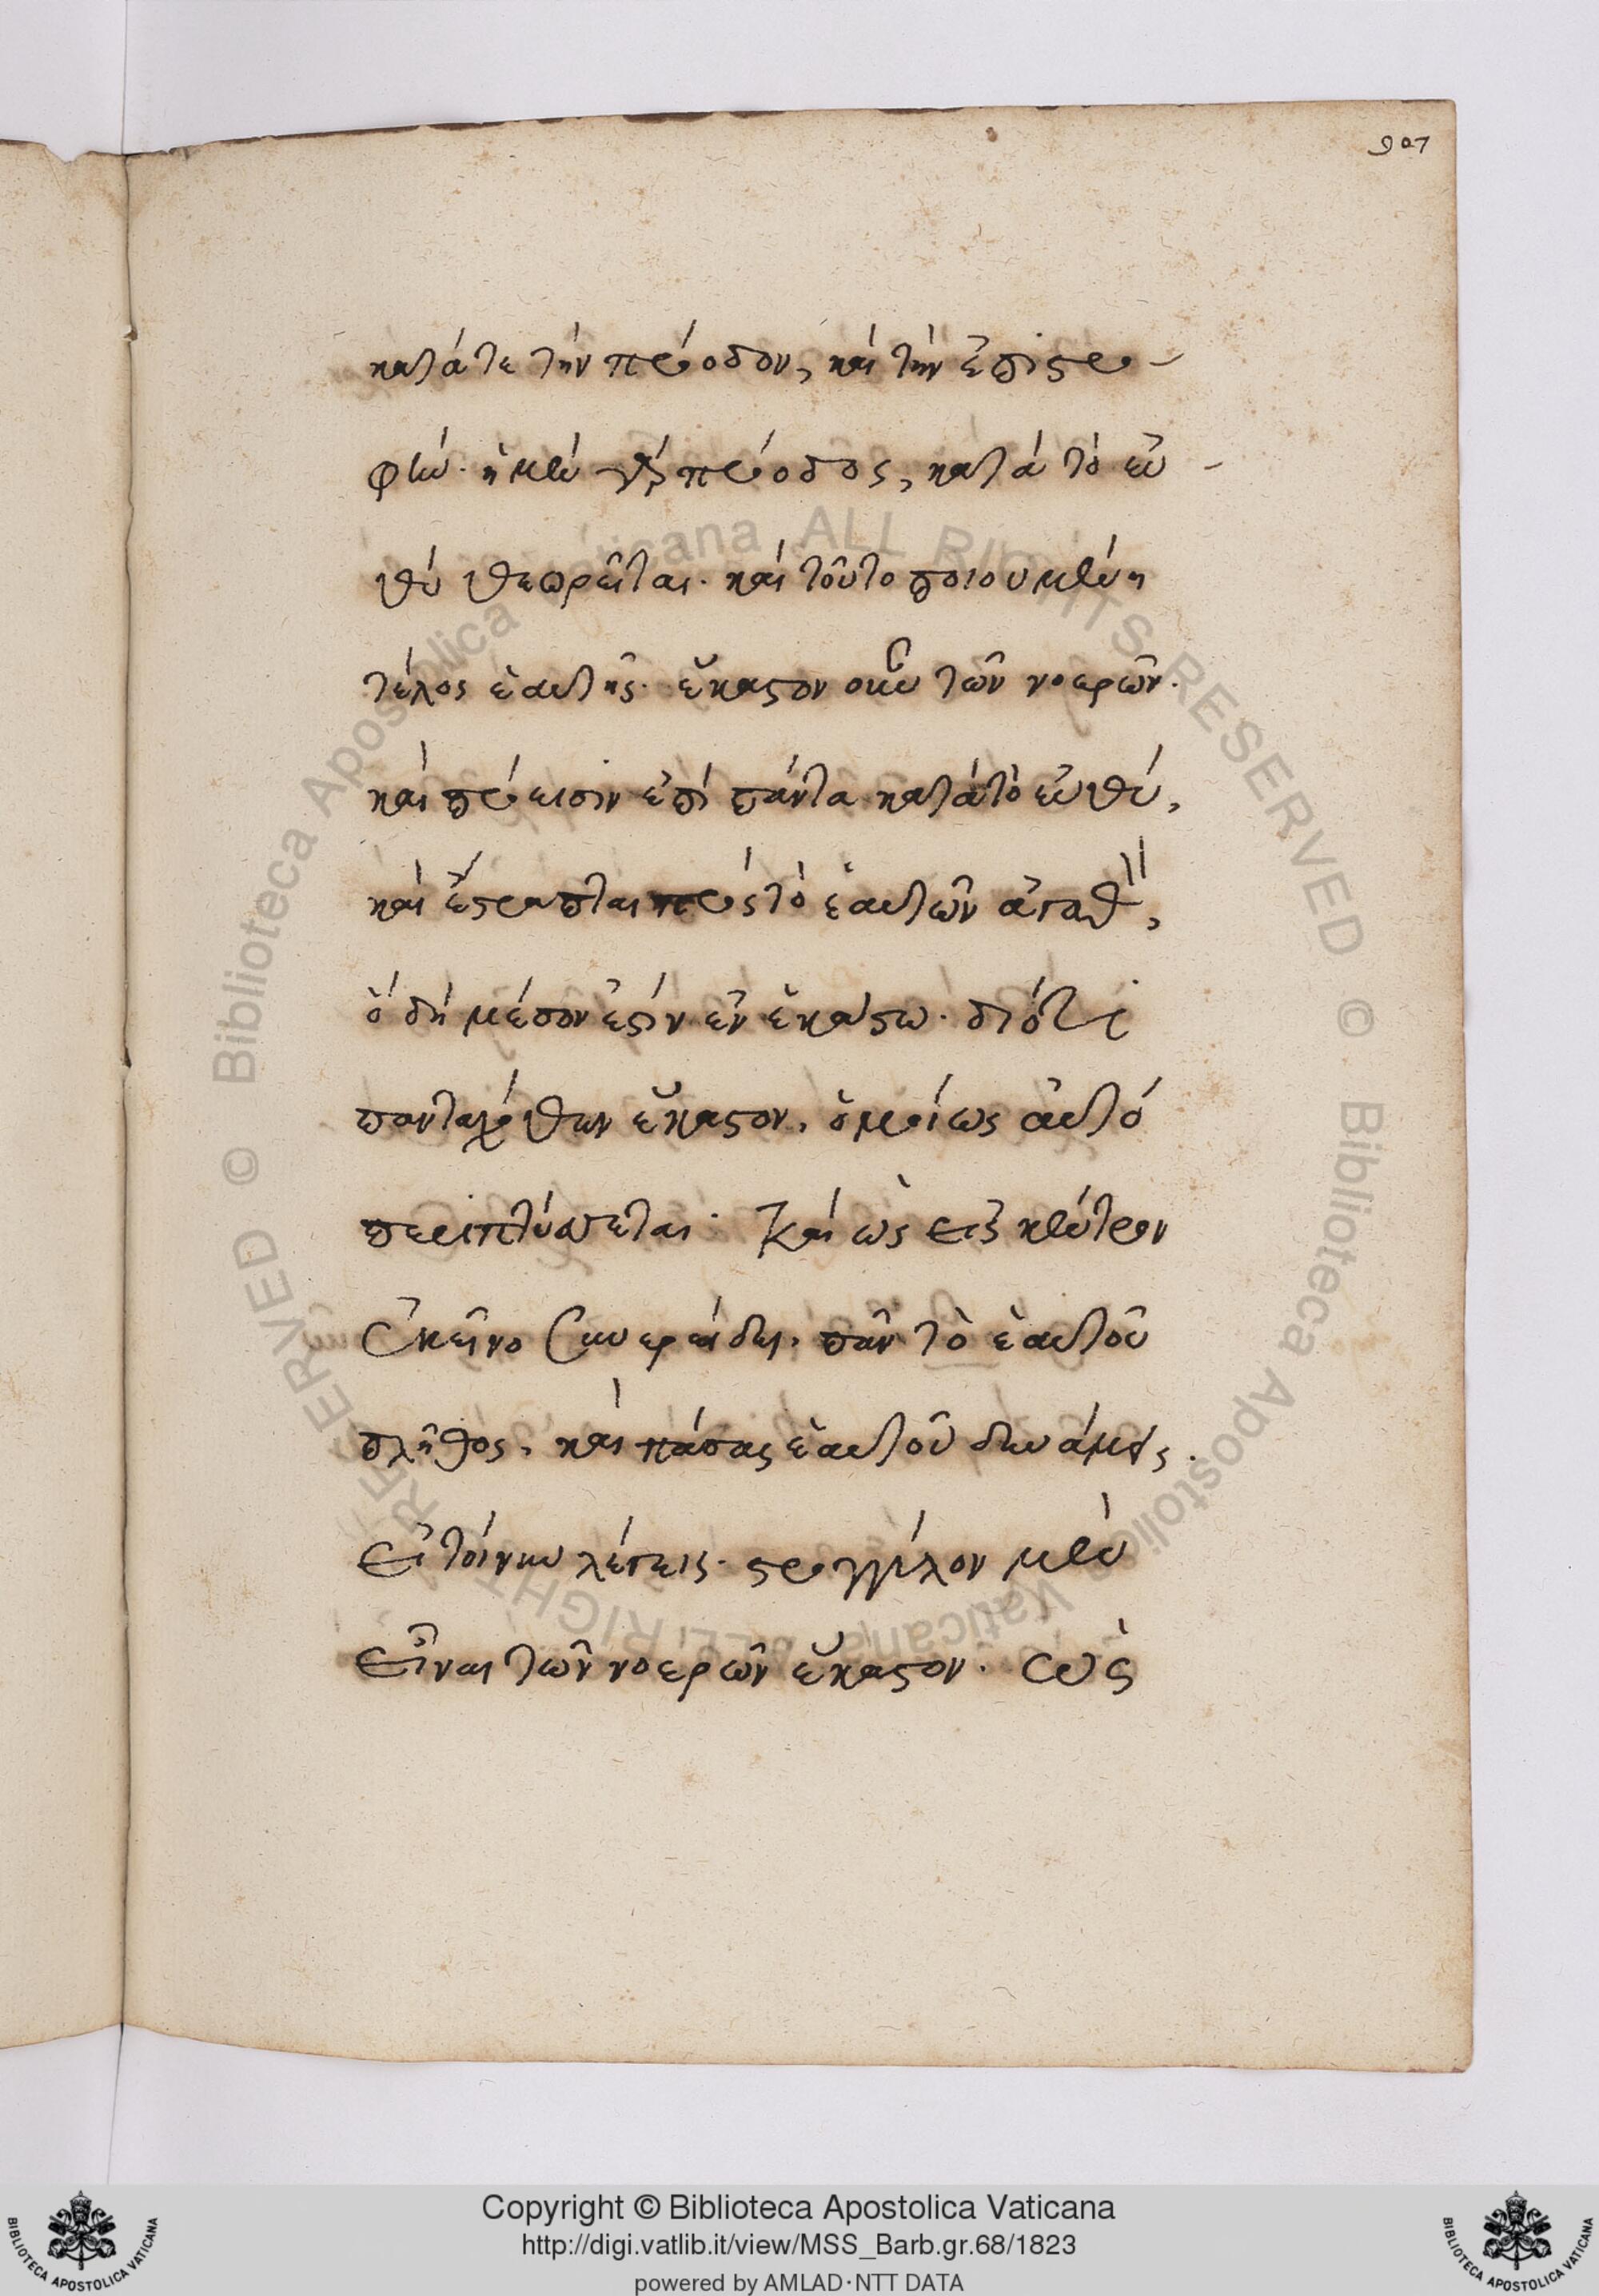 907
κατά τε τήν πρόοδον, καί τήν ἐπιστρο-
φήν. ἡ μέν γάρ πρόοδος, κατά τό εὐ-
θύ θεωρεῖται. καί τοῦτο ποιουμένη
τέλος ἑαυτῆς. ἕκαστον οὖν τῶν νοερῶν.
καί πρόεισιν ἐπί πάντα κατά τό εὐθύ,
καί ἔστραπται πρός τό ἑαυτῶν ἀγαθόν,
ὅ δή μέσον ἐστίν ἐν ἑκάστω. διότι
πανταχόθεν ἕκαστον, ὁμοίως αὐτό
περιπτύσσεται. Καί ὡς εἰς κέντρον
ἐκεῖνο συνερείδει, πᾶν τὸ ἑαυτοῦ
πλῆθος, καί πάσας ἑαυτοῦ δυνάμεις.
Εἰ τοίνυν λέγεις. στρογγύλον μέν
εἶναι τῶν νοερῶν ἕκαστον. ὡς
Copyright © Biblioteca Apostolica Vaticana
http://digi.vatlib.it/view/MSS_Barb.gr.68/1823
powered by AMLAD·NTT DATA
BIBLIOTECA APOSTOLICA VATICANA
BIBLIOTECA APOSTOLICA VATICANA
© Biblioteca Apostolica Vaticana ALL RIGHTS RESERVED © Biblioteca Apostolica Vaticana ALL RIGHTS RESERVED